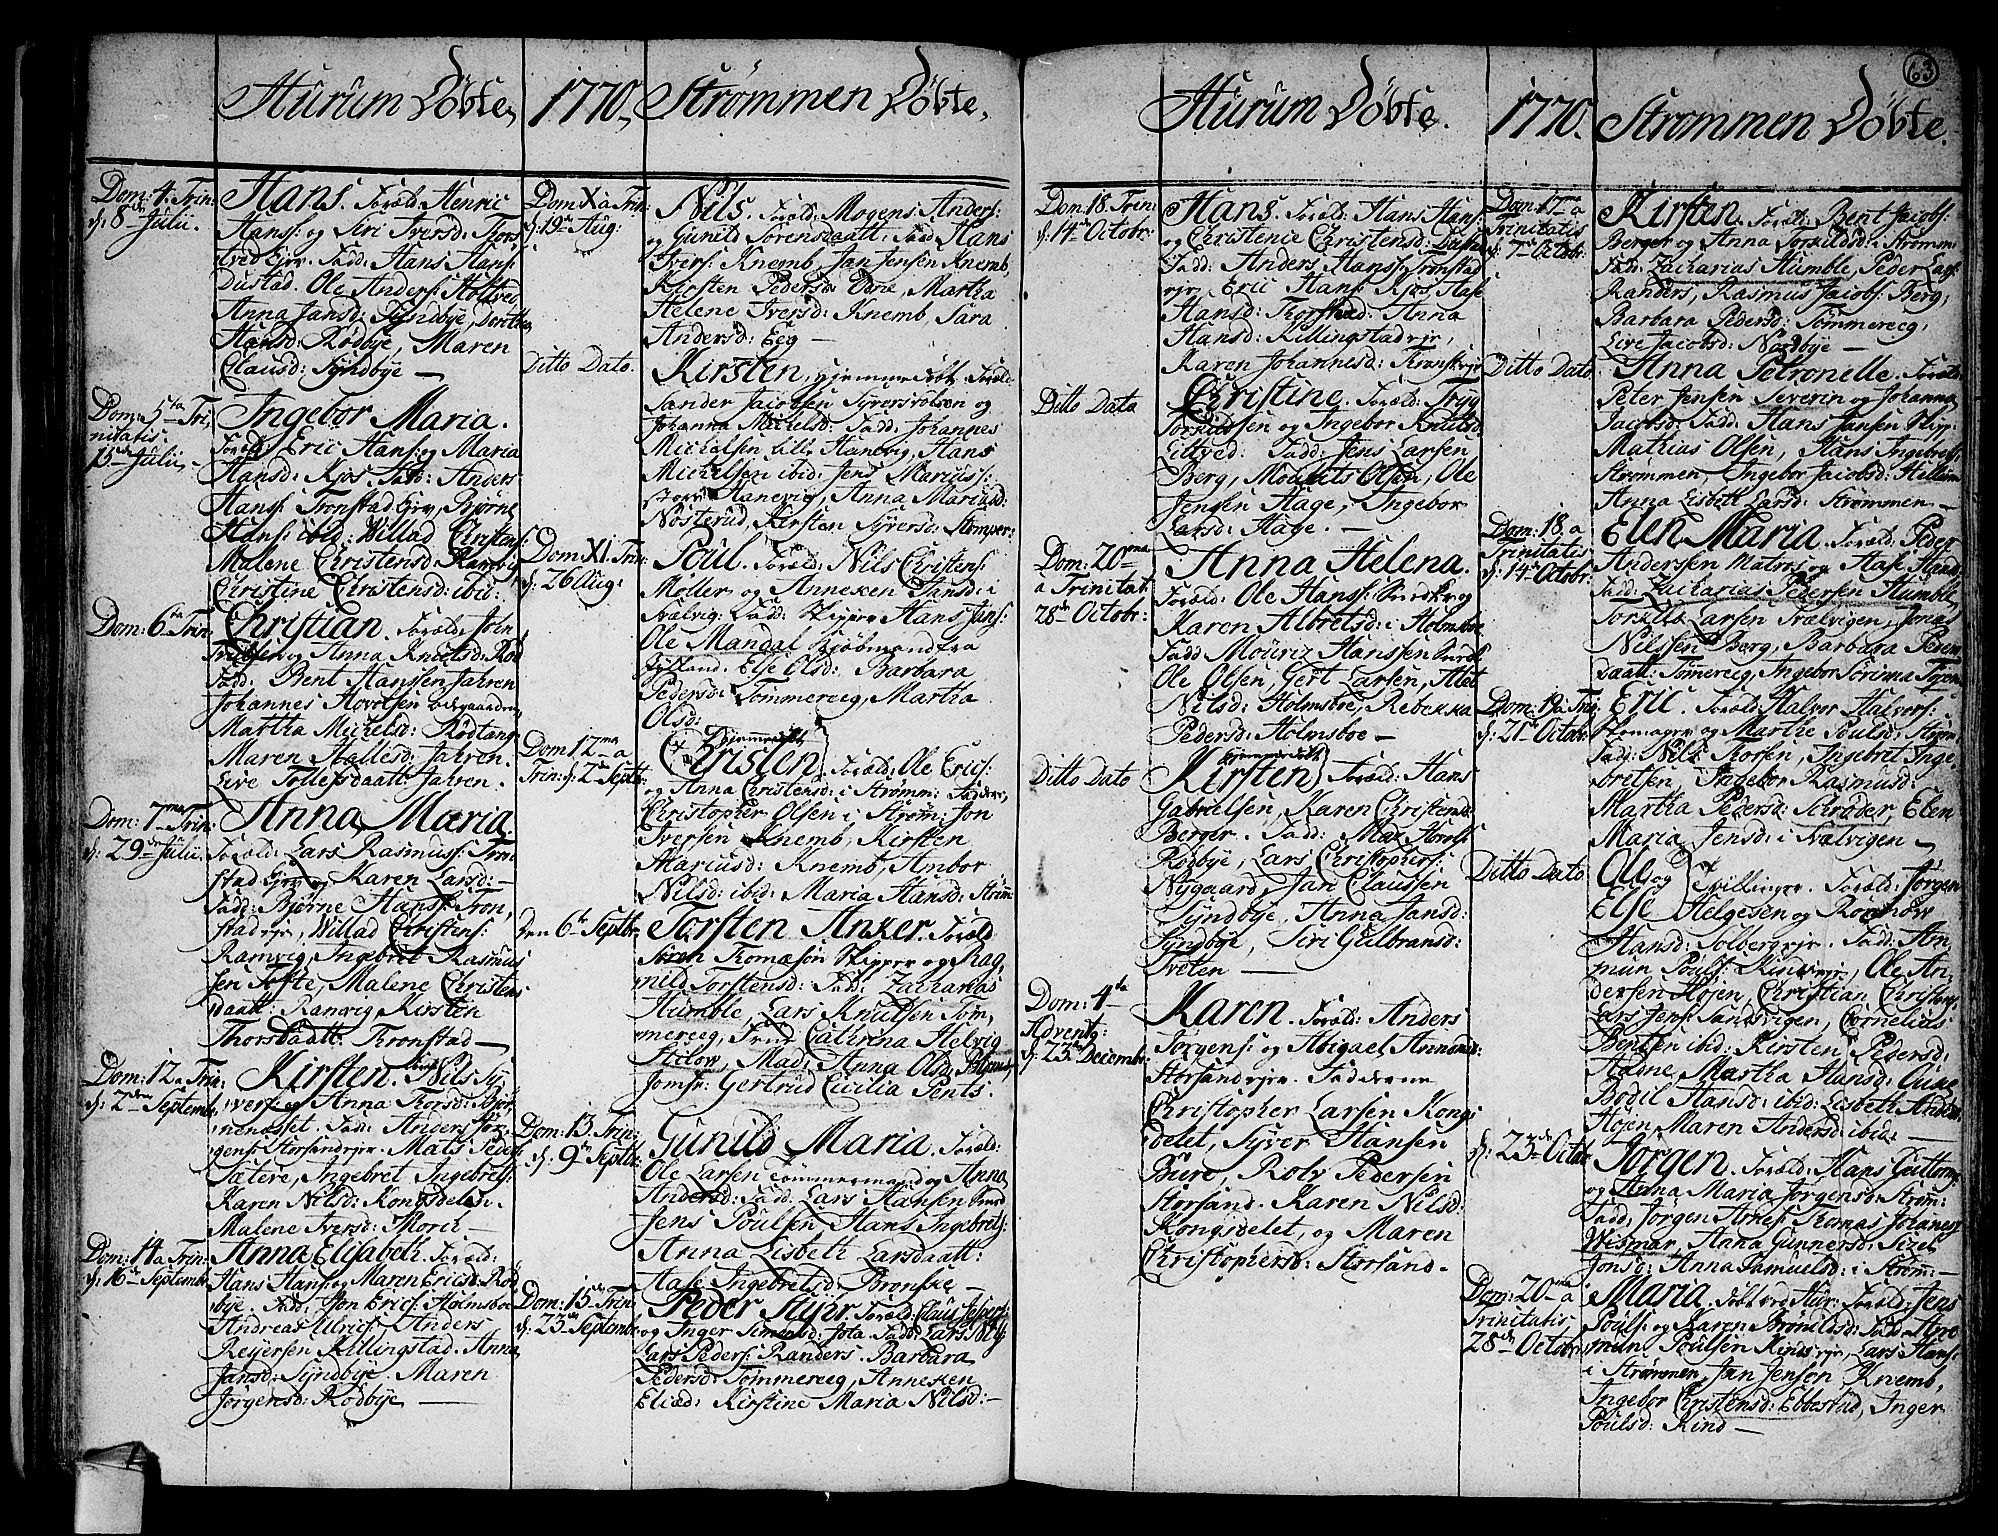 Hurum Döbte,
Dom: 4. Trin:
d: 8de Julii.
Hans. Foræld: Henric
Hans: og Siri Iversd: Tors
tved Ejer. Fadd: Hans Hans:
Dustad. Ole Anders: Holtvet
Anna Jansd: Syndbye, Dorthea
Hansd: Rødbye, Maren
Clausd: Syndbye —
Dom: 5ta Tri,
nitatis.
15de Julii,
Ingebor Maria.
Foræld: Eric Hans: og Maria
Hansd: Kjos. Fadd: Anders
Hans: Tronstad Ejer, Bjørne
Hans: ibid: Willad Christens:
Malene Christensd: Ramvig
Christine Christensd: ibid:
Dom: 6ta Trin:
Christian. Foræld: John
Truelsen og Anna Knutsd: Rød
Fadd: Bent Hanssen Jahren
Johannes Hovelsen
Martha Michelsd: Rødtang
Maren Hallesd: Jahren.
Live Tollefsdaatt: Jahren.
Dom: 7ma Trin:
d: 29de Julii.
Anna Maria.
Foræld: Lars Rasmuss: Tron
stad Ejer og Karen Larsd: —
Fadd: Bjørne Hans: Tron,
stadejer, Willad Christens:
Ramvig, Ingebret Rasmus
sen Tofte, Malene Christens
daatt: Ramvig Kirsten
Thorsdaatt: Tronstad —
Dom: 12a Trin:
d: 2den Septemb:
Kirsten. Foræld: Nils Sy
vers: og Anna Torsd: Bjør
nenesset. Fadd: Anders Jør,
gens: Storsandejer. Mats Peders:
Sætere, Ingebret Ingebrets:
Karen Nilsd: Kongsdelet.
Malene Iversd: Morit —
Dom: 14a Trin:
d: 16de Septembr:
Anna Elisabeth. Foræld:
Hans Hans: og Maren Ericsd: Rød
bye. Fadd: Jon Erics: Holmsboe
Andreas Ulrics: Anders
Reyersen Killingstad. Anna
Jansd: Syndbye. Maren
Jørgensd: Rødbye —
1770, Strømmen Döbte.
Dom Xa Trin:
d: 19de Aug:
Nils. Foræld: Mogens Anders:
og Gunild Sorensdaatt: Fadd: Hans
Ivers: Knemb, Jan Jensen Knemb,
Kirsten Pedersd: Odne, Martha
Helene Iversd: Knemb, Sara
Andersd: Eeg —
Ditto Dato.
Kirsten, hjemmedöbt Foræld:
Sander Jacobsen Syversvolden og
Johanna Michelsd: Fadd: Johannes
Michelsen Lille Hanevig, Hans
Michelsen ibid: Jens Mariuss:
store Hanevig, Anna Mariusd:
Nösterud, Kirsten Syversd: Stomper:
Dom XI. Trin:
d: 26 Aug:
Poul. Foræld: Nils Christens:
Møller og Anneken Jansd: i
Svælvig: Fadd: Skipper Hans Jans:
Ole Mandal Kjöbmand fra
Jylland: Else Olsd: Barbara
Pedersd: Tommereeg, Martha
Olsd:
Dom 12ma a
Trin: d: 2den Septb:
hjemmedöbt
Christen Foræld: Ole Erics:
og Anna Christensd: i Strømm: Faddere,
Christopher Olsen i Strøm: Jon
Iversen Knemb, Kirsten
Mariusd: Knemb, Anbor
Nilsd: ibid: Maria Hansd: Strömm
Den 6te Septbr:
Torsten Anker. Foræld:
Sören Thomæsön Skipper og Rag,
nild Torstensd: Fadd: Zacharias
Humble, Lars Knudsen Tom,
mereeg, Frue Cathrina Helvig
Stilow, Mad: Anna Olsd:
Jomfr: Gertrud Cicilia Pents.
Dom: 13. Trin:
d: 9de Septbr:
Gunild Maria. Foræld:
Ole Larsen Tømmermand og Anna
Andersd: Fadd: Lars Hansen
Jens Poulsen Hans Ingebrets:
Anna Lisbeth Larsdaatt:
Aale Ingebretsd: Bronske —
Dom: 15de Trin:
d: 23de Septembr:
Peder Stuhr. Foræld: Claus Jespers:
og Inger Simensd: Fadd: Lars
Lars Peders: Randers. Barbara
Pedersd: Tommereeg, Anneken
Eliæd: Kirstine Maria Nilsd: —
63
Hurum Döbte.
Dom. 18. Trin:
d: 14de Octobr:
Hans. Foræld: Hans Hans:
og Christenie Christensd:
Fadd: Anders Hans: Tronstad
ejer, Eric Hans: Kjos Aase
Hansd: Torstad. Anna
Hansd: Killingstadejer,
Karen Johannesd: Tronst:ejer
Ditto Dato
Christine. Foræld: Tryg
Torkildsen og Ingebor Knutsd:
Littved. Fadd: Jens Larsen
Berg, Mourits Olsen, Ole
Jensen Hage, Ingebor
Larsd: Hage. —
Dom: 20ma
a Trinitat:
28de Octobr:
Anna Helena.
Foræld: Ole Hans: Snedker og
Karen Albretsd: i Holmsboe
Fadd: Mouriz Hanssen
Ole Olsen, Gert Larsen, Alet
Nilsd: Holmsboe, Rebekka
Pedersd: Holmsboe —
Ditto Dato
hjemmedöbt
Kirsten Foræld: Hans
Gabrielsen, Karen Christensd:
Berger. Fadd: Max Torss:
Rødbye, Lars Christophers:
Nygaard, Jan Claussen
Syndbye, Anna Jansd:
Syndbye, Siri Gulbransd:
Tveten —
Dom: 4ta
Advent:
d: 23de Decembr:
Karen. Foræld: Anders
Jørgens: og Abigael Annonsd:
Storsandejer. Fadderne
Christopher Larsen Kongs
delet, Syver Hansen
Bure, Rolv Pedersen
Storsand. Karen Nilsd:
Kongsdelet, og Maren
Christophersd: Storsand. —
1770. Strømmen Döbte.
Dom 17ma a
Trinitatis
d: 7de Octobr:
Kirsten. Foræld: Bent Jacobs:
Berger og Anna Torkildsd: i Strømm:
Fadd: Zacharias Humble, Peder Lars:
Randers, Rasmus Jacobs: Berg,
Barbara Pedersd: Tommereeg,
Live Jacobsd: Nordbye —
Ditto Dato
Anna Petronelle. Foræld:
Peter Jensen Severin og Johanna
Jacobsd: Fadd: Hans Jansen Skipp:
Mathias Olsen, Hans Ingebrets:
Strømmen, Ingebor Jacobsd: Hellum
Anna Lisbeth Larsd: Strømmen —
Dom: 18. a
Trinitatis
d: 14de Octobr:
Elen Maria. Foræld: Peder
Andersen Matros og Aase Hansd:
Fadd: Zacharias Pedersen Humble,
Torkils Larsen Svælvigen, Jonas
Nilssen Berg, Barbara Peders
daatt: Tommereeg, Ingebor Sørinna
Dom: 19a Tri,
d: 21de Octobr:
Eric. Foræld: Halvor Halvors:
Skomager og Marthe Poulsd: Strøm:
Fadd: Nils Torsen, Ingebret Inge
bretsen, Ingebor Rasmusd:
Martha Pedersd: Schrøder, Elen
Maria Jensd: i Svælvigen —
Ditto Dato
Ole og
Else Tvillinger. Foræld: Jørgen
Helgesen og Rønnow
Hansd: Solbergejer. Fadd: Am,
mun Pouls: Kindejer, Ole An,
dersen Højen, Christian Christens:
Lars Jens: Sandvigen, Cornelius
Bentsen ibid: Kirsten Pedersd:
Aadne Martha Hansd:
Bodil Hansd: ibid: Lisbeth Andersd:
Højen, Maren Andersd: ibid: —
d: 23de Octbr:
Jørgen. Foræld: Hans Guttorms:
og Anna Maria Jörgensd: Strøm:
Fadd: Jørgen Arnes: Thomas Johannes:
Wismar, Anna Gunnersd: Sizel
Jonsd: Anna Samuelsd: i Strøm: —
Dom: 20ma a
Trinitatis
28de Octobr:
Maria. Döbt ved Hur: Foræld: Jens
Pouls: og Karen Bronildsd: Fadd: Am
mun Poulsen Kindejer, Lars Hans:
i Strømmen, Jan Jenson Knemb,
Ingebor Christensd: Ebbestad, Inger
Poulsd: Kind —